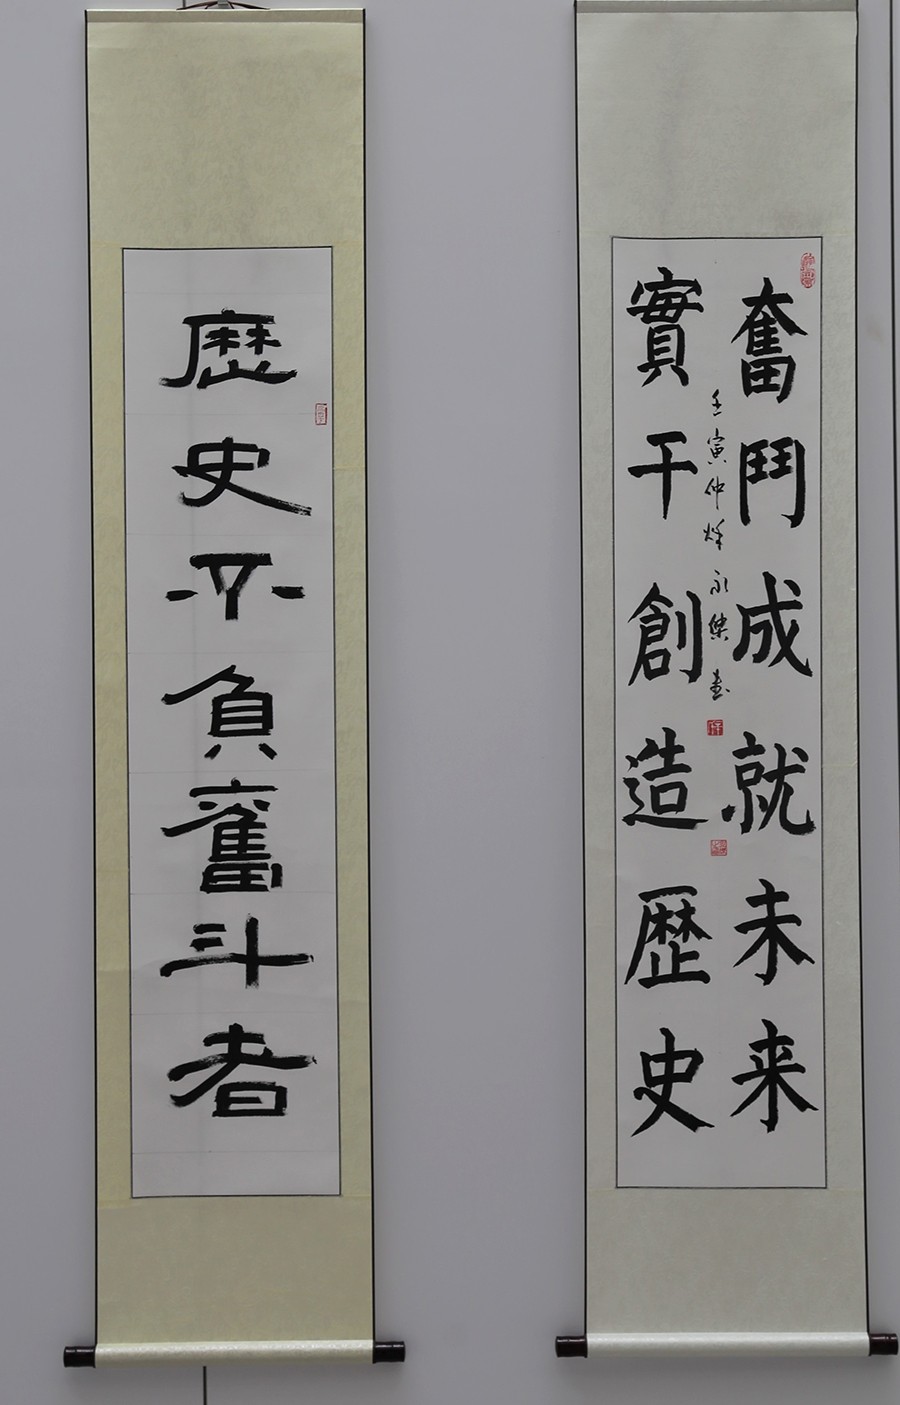 歷史不負奮斗者
奮鬥成就未来
實干創造歷史
壬寅仲烽永傑書